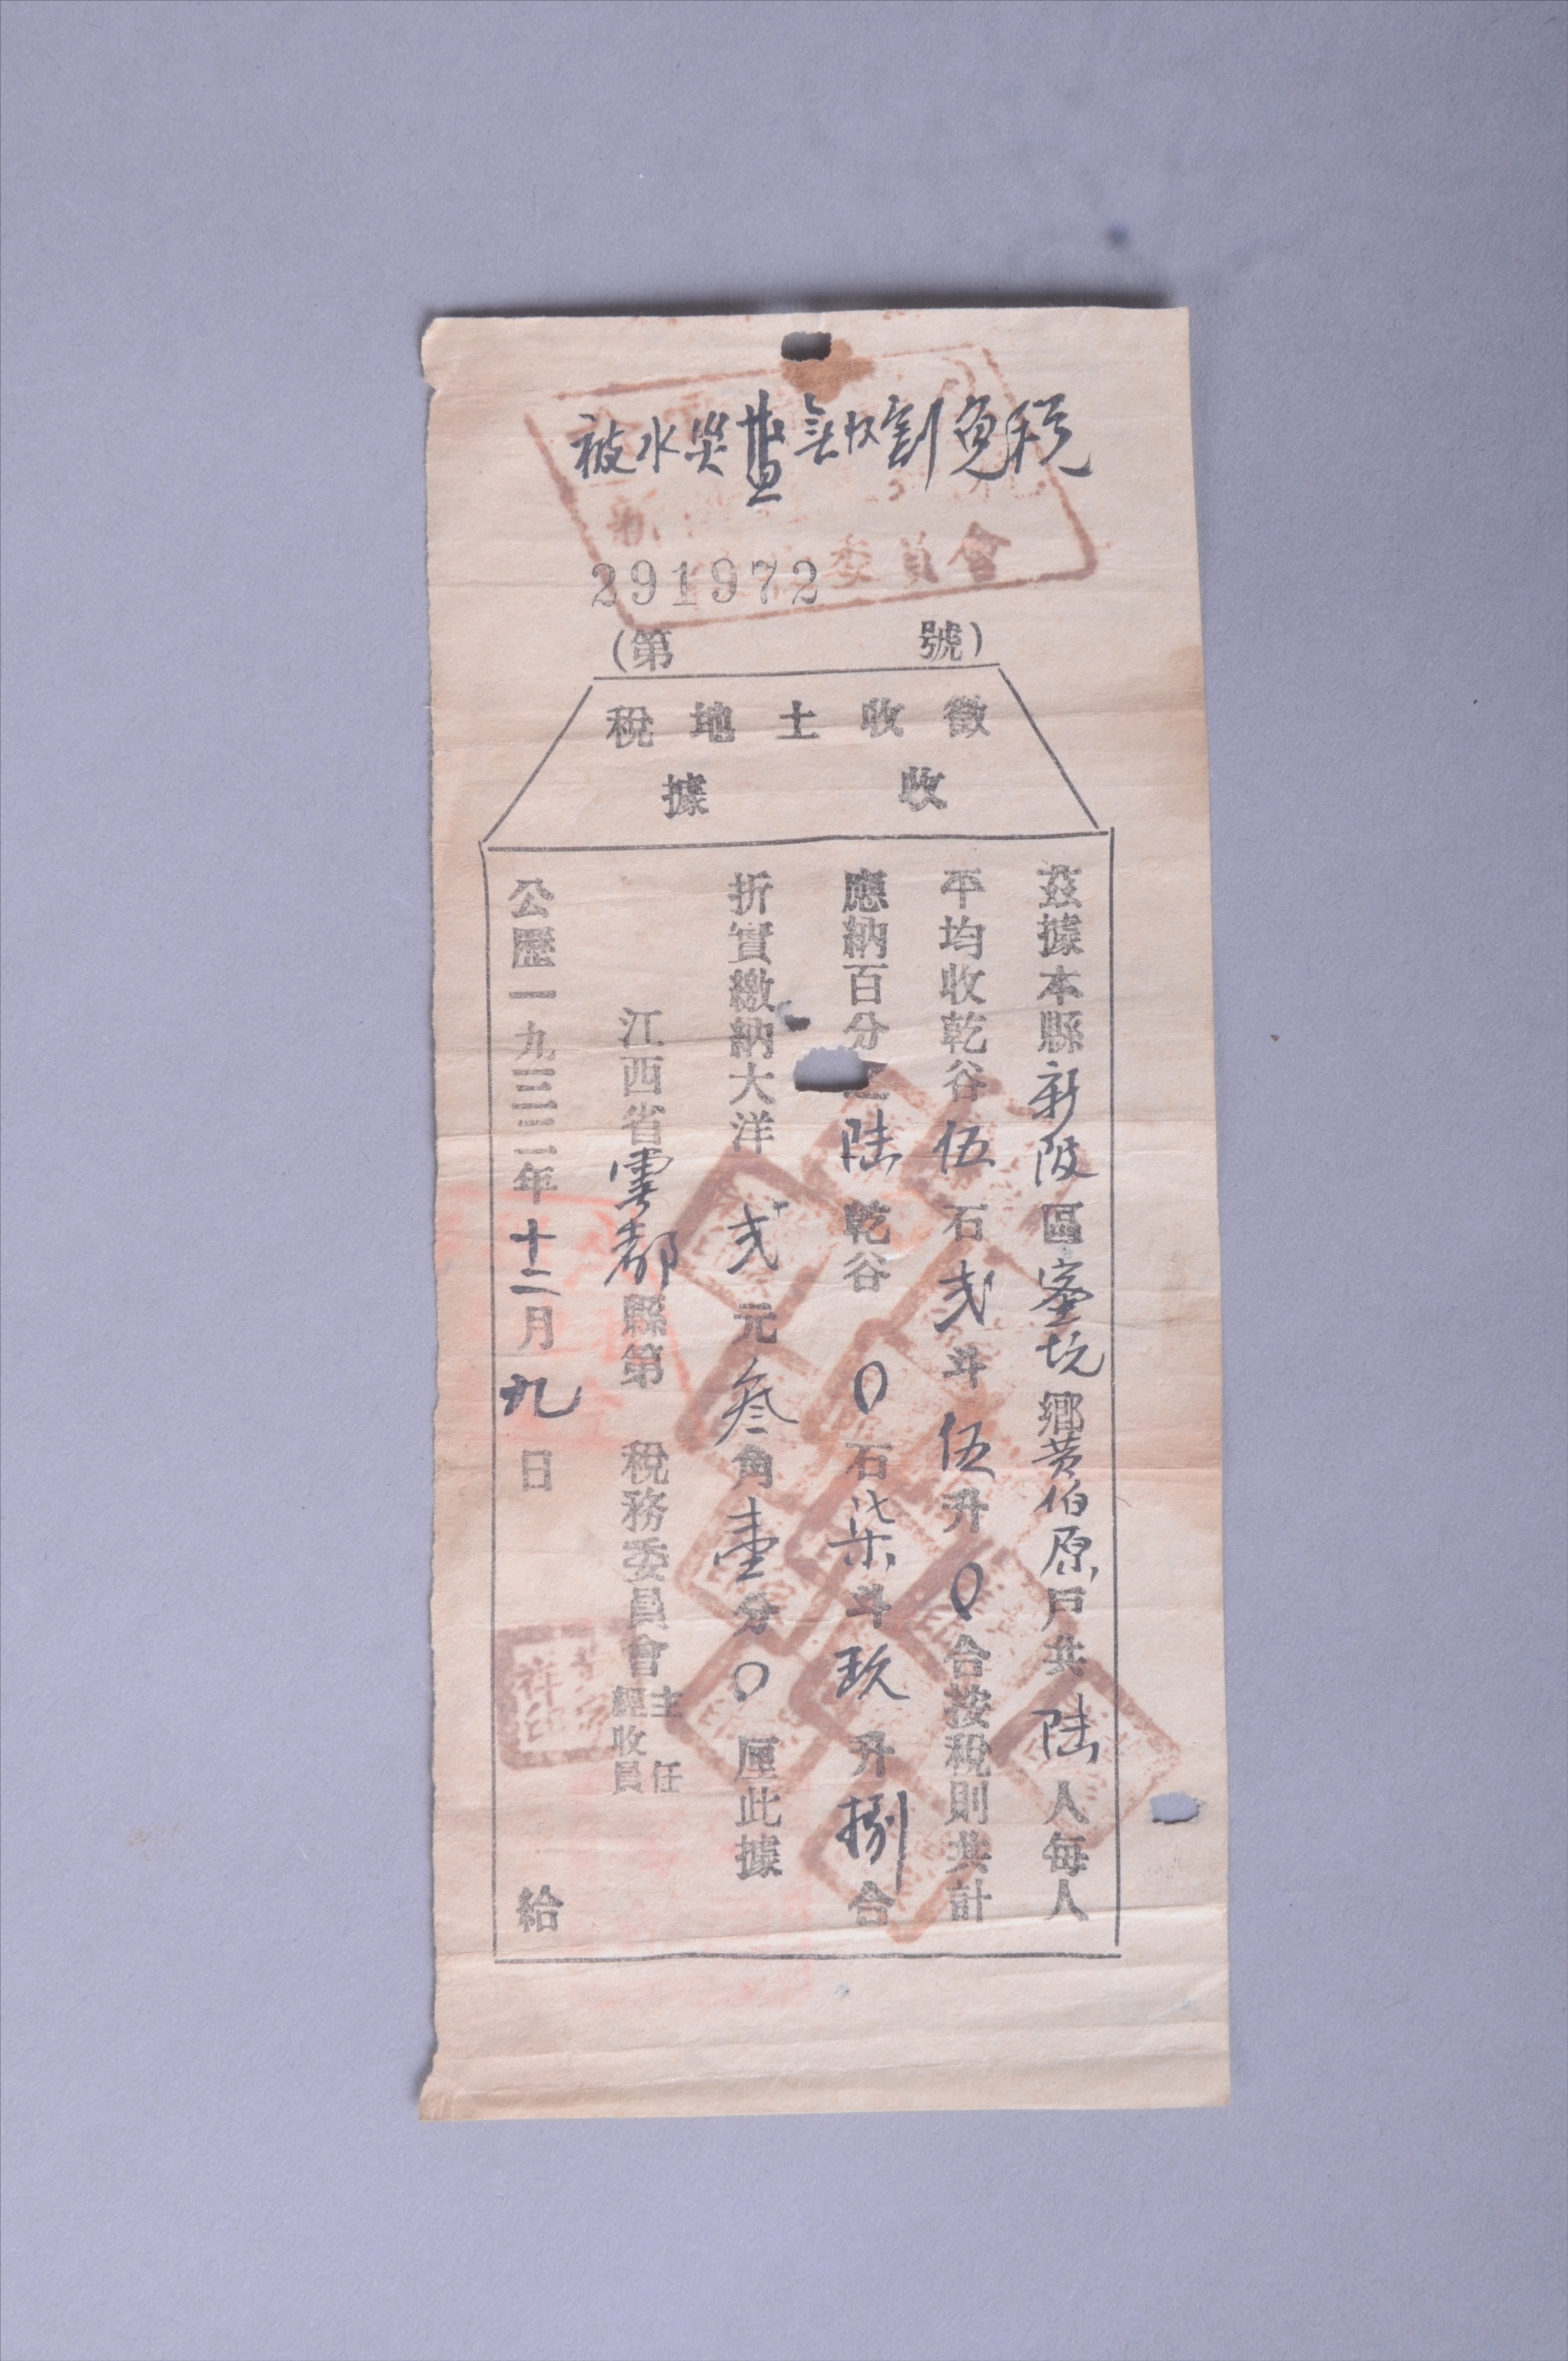 被水災盡無收割免稅
291972
(第 號)
徵收土地稅
收據
茲據本縣新陂區窰坑鄉黄伯原戶共陆人每人
平均收乾谷伍石弍斗伍升0合按稅則共計
應納百分之陆乾谷0石柒斗玖升捌合
折實繳納大洋弍元叁角壹分0厘此據
江西省雩都縣第 稅務委員會主任
經收員
公歷一九三三年十二月九日 給
委員會